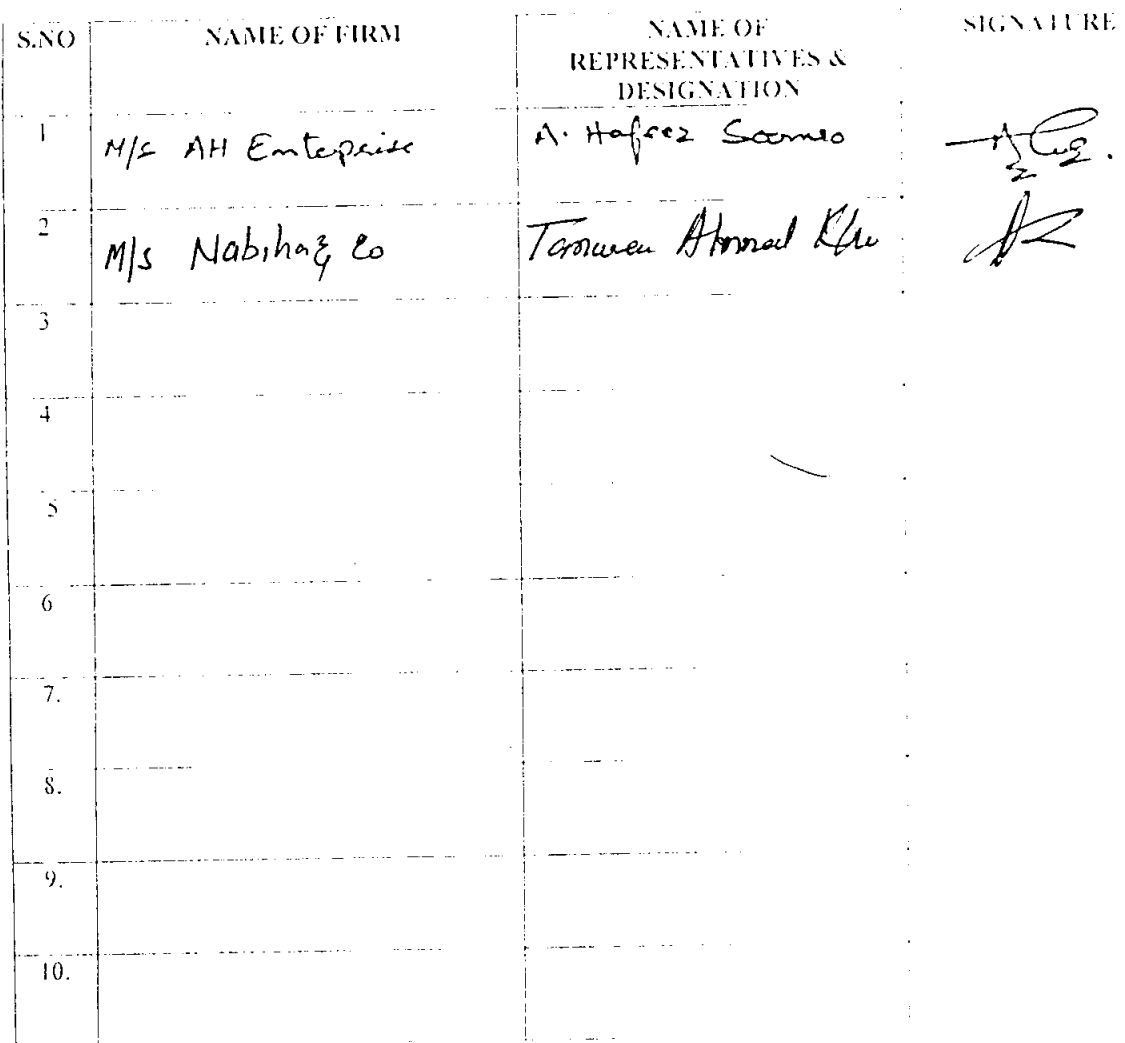 S.NO NAME OF FIRM NAME OF REPRESENTATIVES & DESIGNATION SIGNATURE
1 M/s AH Enterprise A. Hafeez Soomro
2 M/s Nabiha & Co Ahmad
3
4
5
6
7.
8.
9.
10.